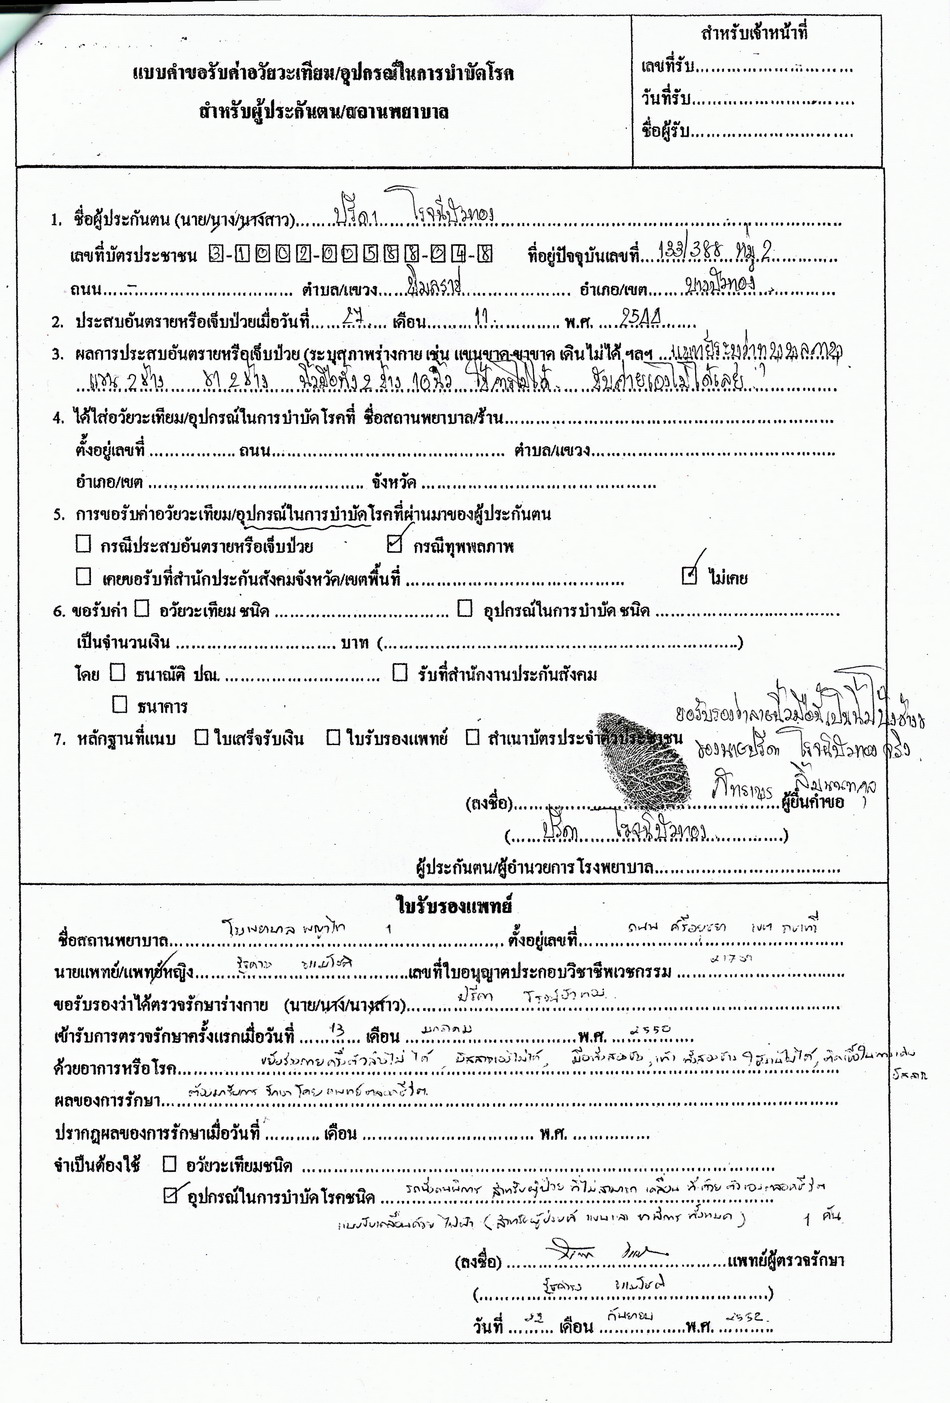 แบบคำขอรับค่าอวัยวะเทียม/อุปกรณ์ในการบำบัดโรค
สำหรับผู้ประกันตน/สถานพยาบาล
สำหรับเจ้าหน้าที่
เลขที่รับ
วันที่รับ
ชื่อผู้รับ
1. ชื่อผู้ประกันตน (นาย/นาง/นางสาว) ปรีดา โรจน์บัวทอง
เลขที่บัตรประชาชน 3-1002-00588-04-8 ที่อยู่ปัจจุบันเลขที่ 133/388 หมู่ 2
ถนน - ตำบล/แขวง พิมลราช อำเภอ/เขต บางบัวทอง
2. ประสบอันตรายหรือเจ็บป่วยเมื่อวันที่ 27 เดือน 11 พ.ศ. 2544
3. ผลการประสบอันตรายหรือเจ็บป่วย (ระบุสภาพร่างกาย เช่น แขนขาด ขาขาด เดินไม่ได้ ฯลฯ แพทย์ระบุว่าทุพพลภาพ
แขน 2 ข้าง ขา 2 ข้าง นิ้วมือทั้ง 2 ข้าง 10 นิ้ว ใช้การไม่ได้ ขับถ่ายเองไม่ได้เลย
4. ได้ใส่อวัยวะเทียม/อุปกรณ์ในการบำบัดโรคที่ ชื่อสถานพยาบาล/ร้าน
ตั้งอยู่เลขที่ ถนน ตำบล/แขวง
อำเภอ/เขต จังหวัด
5. การขอรับค่าอวัยวะเทียม/อุปกรณ์ในการบำบัดโรคที่ผ่านมาของผู้ประกันตน
☐ กรณีประสบอันตรายหรือเจ็บป่วย ☑ กรณีทุพพลภาพ
☐ เคยขอรับที่สำนักประกันสังคมจังหวัด/เขตพื้นที่ ☑ ไม่เคย
6. ขอรับค่า ☐ อวัยวะเทียม ชนิด ☐ อุปกรณ์ในการบำบัด ชนิด
เป็นจำนวนเงิน บาท ( )
โดย ☐ ธนาณัติ ปณ. ☐ รับที่สำนักงานประกันสังคม
☐ ธนาคาร
ขอรับรองว่าลายนิ้วมือนี้เป็นนิ้วโป้งซ้าย
7. หลักฐานที่แนบ ☐ ใบเสร็จรับเงิน ☐ ใบรับรองแพทย์ ☐ สำเนาบัตรประจำตัวประชาชน
ของนายปรีดา โรจน์บัวทอง จริง
(ลงชื่อ) ผู้ยื่นคำขอ
(ปรีดา โรจน์บัวทอง)
ผู้ประกันตน/ผู้อำนวยการโรงพยาบาล
ใบรับรองแพทย์
ชื่อสถานพยาบาล โรงพยาบาล พญาไท 1 ตั้งอยู่เลขที่ ถนน ศรีอยุธยา เขต ราชเทวี
นายแพทย์/แพทย์หญิง เลขที่ใบอนุญาตประกอบวิชาชีพเวชกรรม
ขอรับรองว่าได้ตรวจรักษาร่างกาย (นาย/นาง/นางสาว) ปรีดา โรจน์บัวทอง
เข้ารับการตรวจรักษาครั้งแรกเมื่อวันที่ 13 เดือน มกราคม พ.ศ. 2550
ด้วยอาการหรือโรค
ผลของการรักษา ต้องได้รับการ รักษา โดย แพทย์ ตลอดชีวิต
ปรากฏผลของการรักษาเมื่อวันที่ เดือน พ.ศ.
จำเป็นต้องใช้ ☐ อวัยวะเทียมชนิด
☑ อุปกรณ์ในการบำบัดโรคชนิด รถนั่งคนพิการ สำหรับผู้ป่วย ที่ไม่สามารถ เคลื่อน ที่ด้วย ตัวเองตลอดชีวิต
แบบขับเคลื่อนด้วย ไฟฟ้า (สำหรับผู้ป่วยที่ แขนและ ขาพิการ ทั้งหมด) 1 คัน
(ลงชื่อ) แพทย์ผู้ตรวจรักษา
วันที่ 22 เดือน กันยายน พ.ศ. 2552